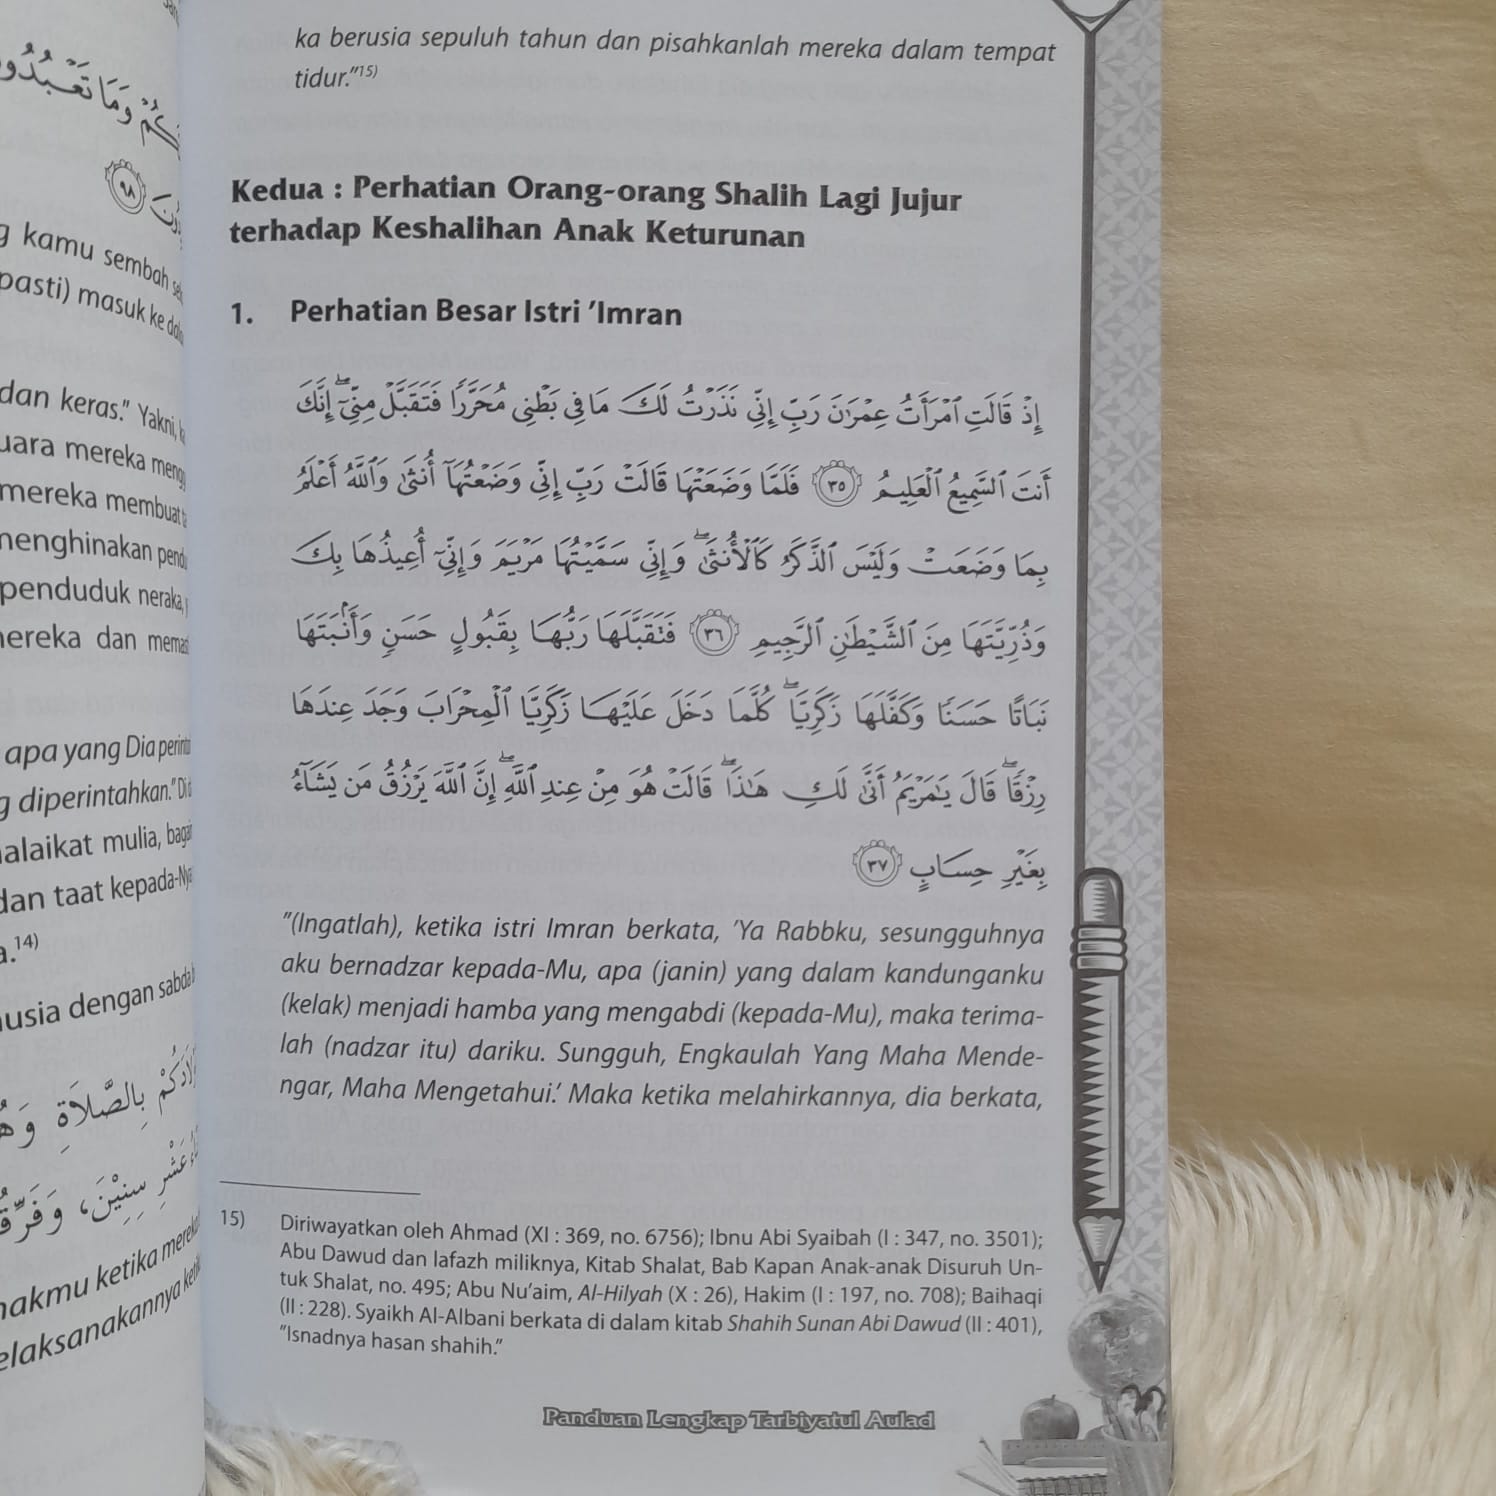 كُمْ وَمَا تَعْبُدُو
٩٨
kamu sembah
pasti) masuk ke
dan keras." Yakni,
mereka
mereka membuat
menghinakan
penduduk neraka,
mereka dan
apa yang Dia
diperintahkan."
malaikat mulia,
dan taat kepada-Nya
14)
dengan
بِالصَّلَاةِ
عَشْرِ سِنِيْنَ، وَفَرِّقُ
ketika
ka berusia sepuluh tahun dan pisahkanlah mereka dalam tempat
tidur."15)
Kedua : Perhatian Orang-orang Shalih Lagi Jujur
terhadap Keshalihan Anak Keturunan
1. Perhatian Besar Istri 'Imran
إِذْ قَالَتِ ٱمْرَأَتُ عِمْرَٰنَ رَبِّ إِنِّي نَذَرْتُ لَكَ مَا فِي بَطْنِي مُحَرَّرًا فَتَقَبَّلْ مِنِّيٓ ۖ إِنَّكَ
أَنتَ ٱلسَّمِيعُ ٱلْعَلِيمُ ٣٥ فَلَمَّا وَضَعَتْهَا قَالَتْ رَبِّ إِنِّي وَضَعْتُهَآ أُنثَىٰ وَٱللَّهُ أَعْلَمُ
بِمَا وَضَعَتْ وَلَيْسَ ٱلذَّكَرُ كَٱلْأُنثَىٰ ۖ وَإِنِّي سَمَّيْتُهَا مَرْيَمَ وَإِنِّيٓ أُعِيذُهَا بِكَ
وَذُرِّيَّتَهَا مِنَ ٱلشَّيْطَٰنِ ٱلرَّجِيمِ ٣٦ فَتَقَبَّلَهَا رَبُّهَا بِقَبُولٍ حَسَنٍ وَأَنۢبَتَهَا
نَبَاتًا حَسَنًا وَكَفَّلَهَا زَكَرِيَّا ۖ كُلَّمَا دَخَلَ عَلَيْهَا زَكَرِيَّا ٱلْمِحْرَابَ وَجَدَ عِندَهَا
رِزْقًا ۖ قَالَ يَٰمَرْيَمُ أَنَّىٰ لَكِ هَٰذَا ۖ قَالَتْ هُوَ مِنْ عِندِ ٱللَّهِ ۖ إِنَّ ٱللَّهَ يَرْزُقُ مَن يَشَآءُ
بِغَيْرِ حِسَابٍ ٣٧
"(Ingatlah), ketika istri Imran berkata, 'Ya Rabbku, sesungguhnya
aku bernadzar kepada-Mu, apa (janin) yang dalam kandunganku
(kelak) menjadi hamba yang mengabdi (kepada-Mu), maka terima-
lah (nadzar itu) dariku. Sungguh, Engkaulah Yang Maha Mende-
ngar, Maha Mengetahui.' Maka ketika melahirkannya, dia berkata,
15) Diriwayatkan oleh Ahmad (XI : 369, no. 6756); Ibnu Abi Syaibah (I : 347, no. 3501);
Abu Dawud dan lafazh miliknya, Kitab Shalat, Bab Kapan Anak-anak Disuruh Un-
tuk Shalat, no. 495; Abu Nu'aim, Al-Hilyah (X : 26), Hakim (I : 197, no. 708); Baihaqi
(II : 228). Syaikh Al-Albani berkata di dalam kitab Shahih Sunan Abi Dawud (II : 401),
"Isnadnya hasan shahih."
Panduan Lengkap Tarbiyatul Aulad